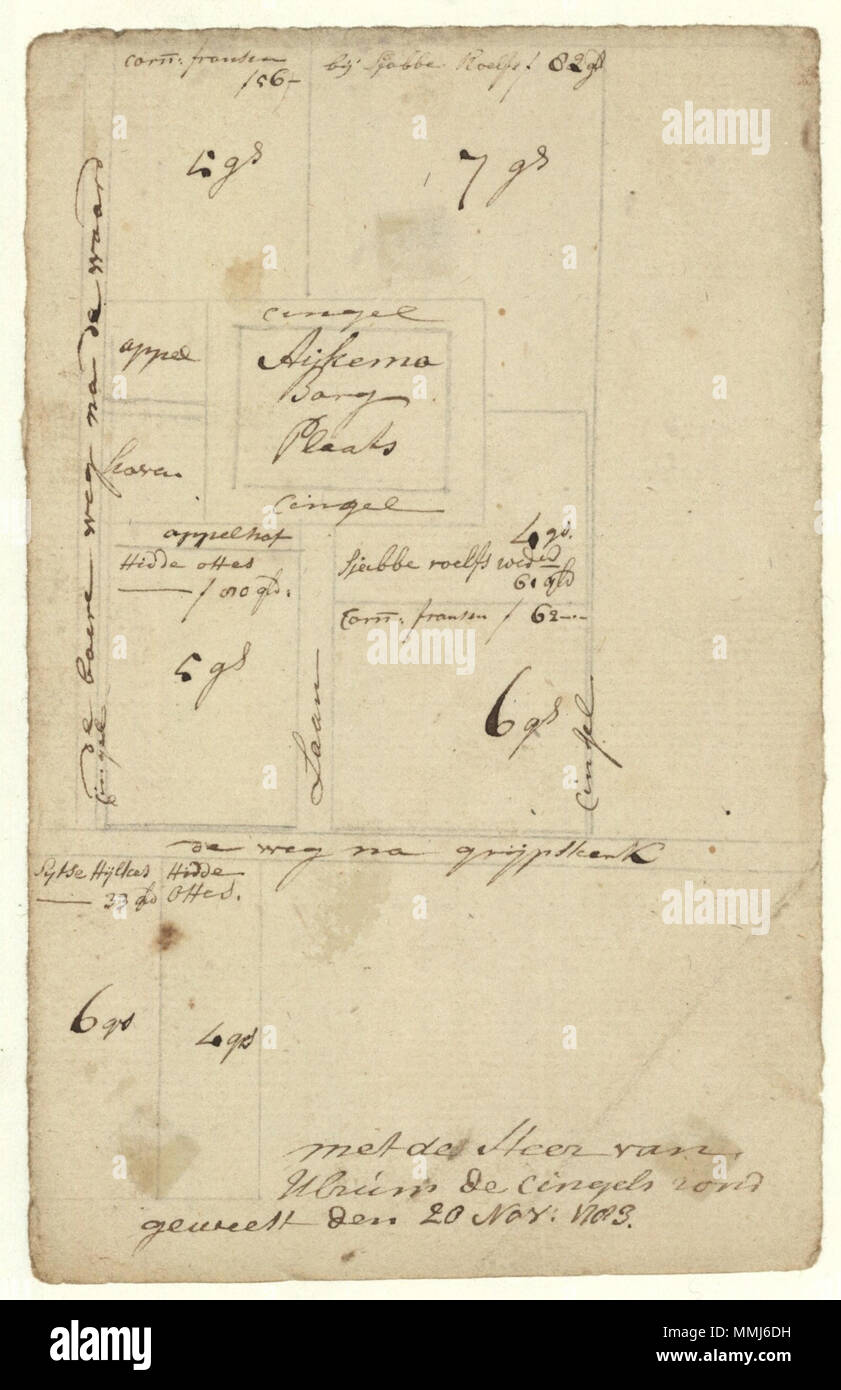 Corn: fransen
f 56-
bij Sjabbe Roelfs f 82 gl
5 gs
7 gs
de boere weg na de waard
cingel
appel
hoven
Aijkema
Borg
Plaats
cingel
appelhof
Hidde ottes
5 gs
Laan
4 gs.
Sjabbe roelfs wed
61 gld
Corn: fransen f 62--
6 gs
Cingel
cingel
de weg na grijpskerk
Sytse Hijlkes
33 gld
Hidde
Ottes.
6 gs
4 gs
met de Heer van
de cingels rond
geweest den 20 Nov: 1783.
alamy
alamy
alamy
alamy
a
a
a
alamy
Image ID: MMJ6DH
www.alamy.com